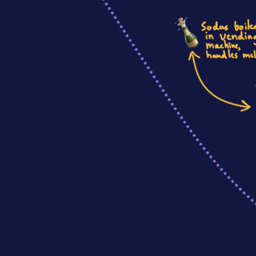 Sodas boile
in vendin
machine,
handles mel